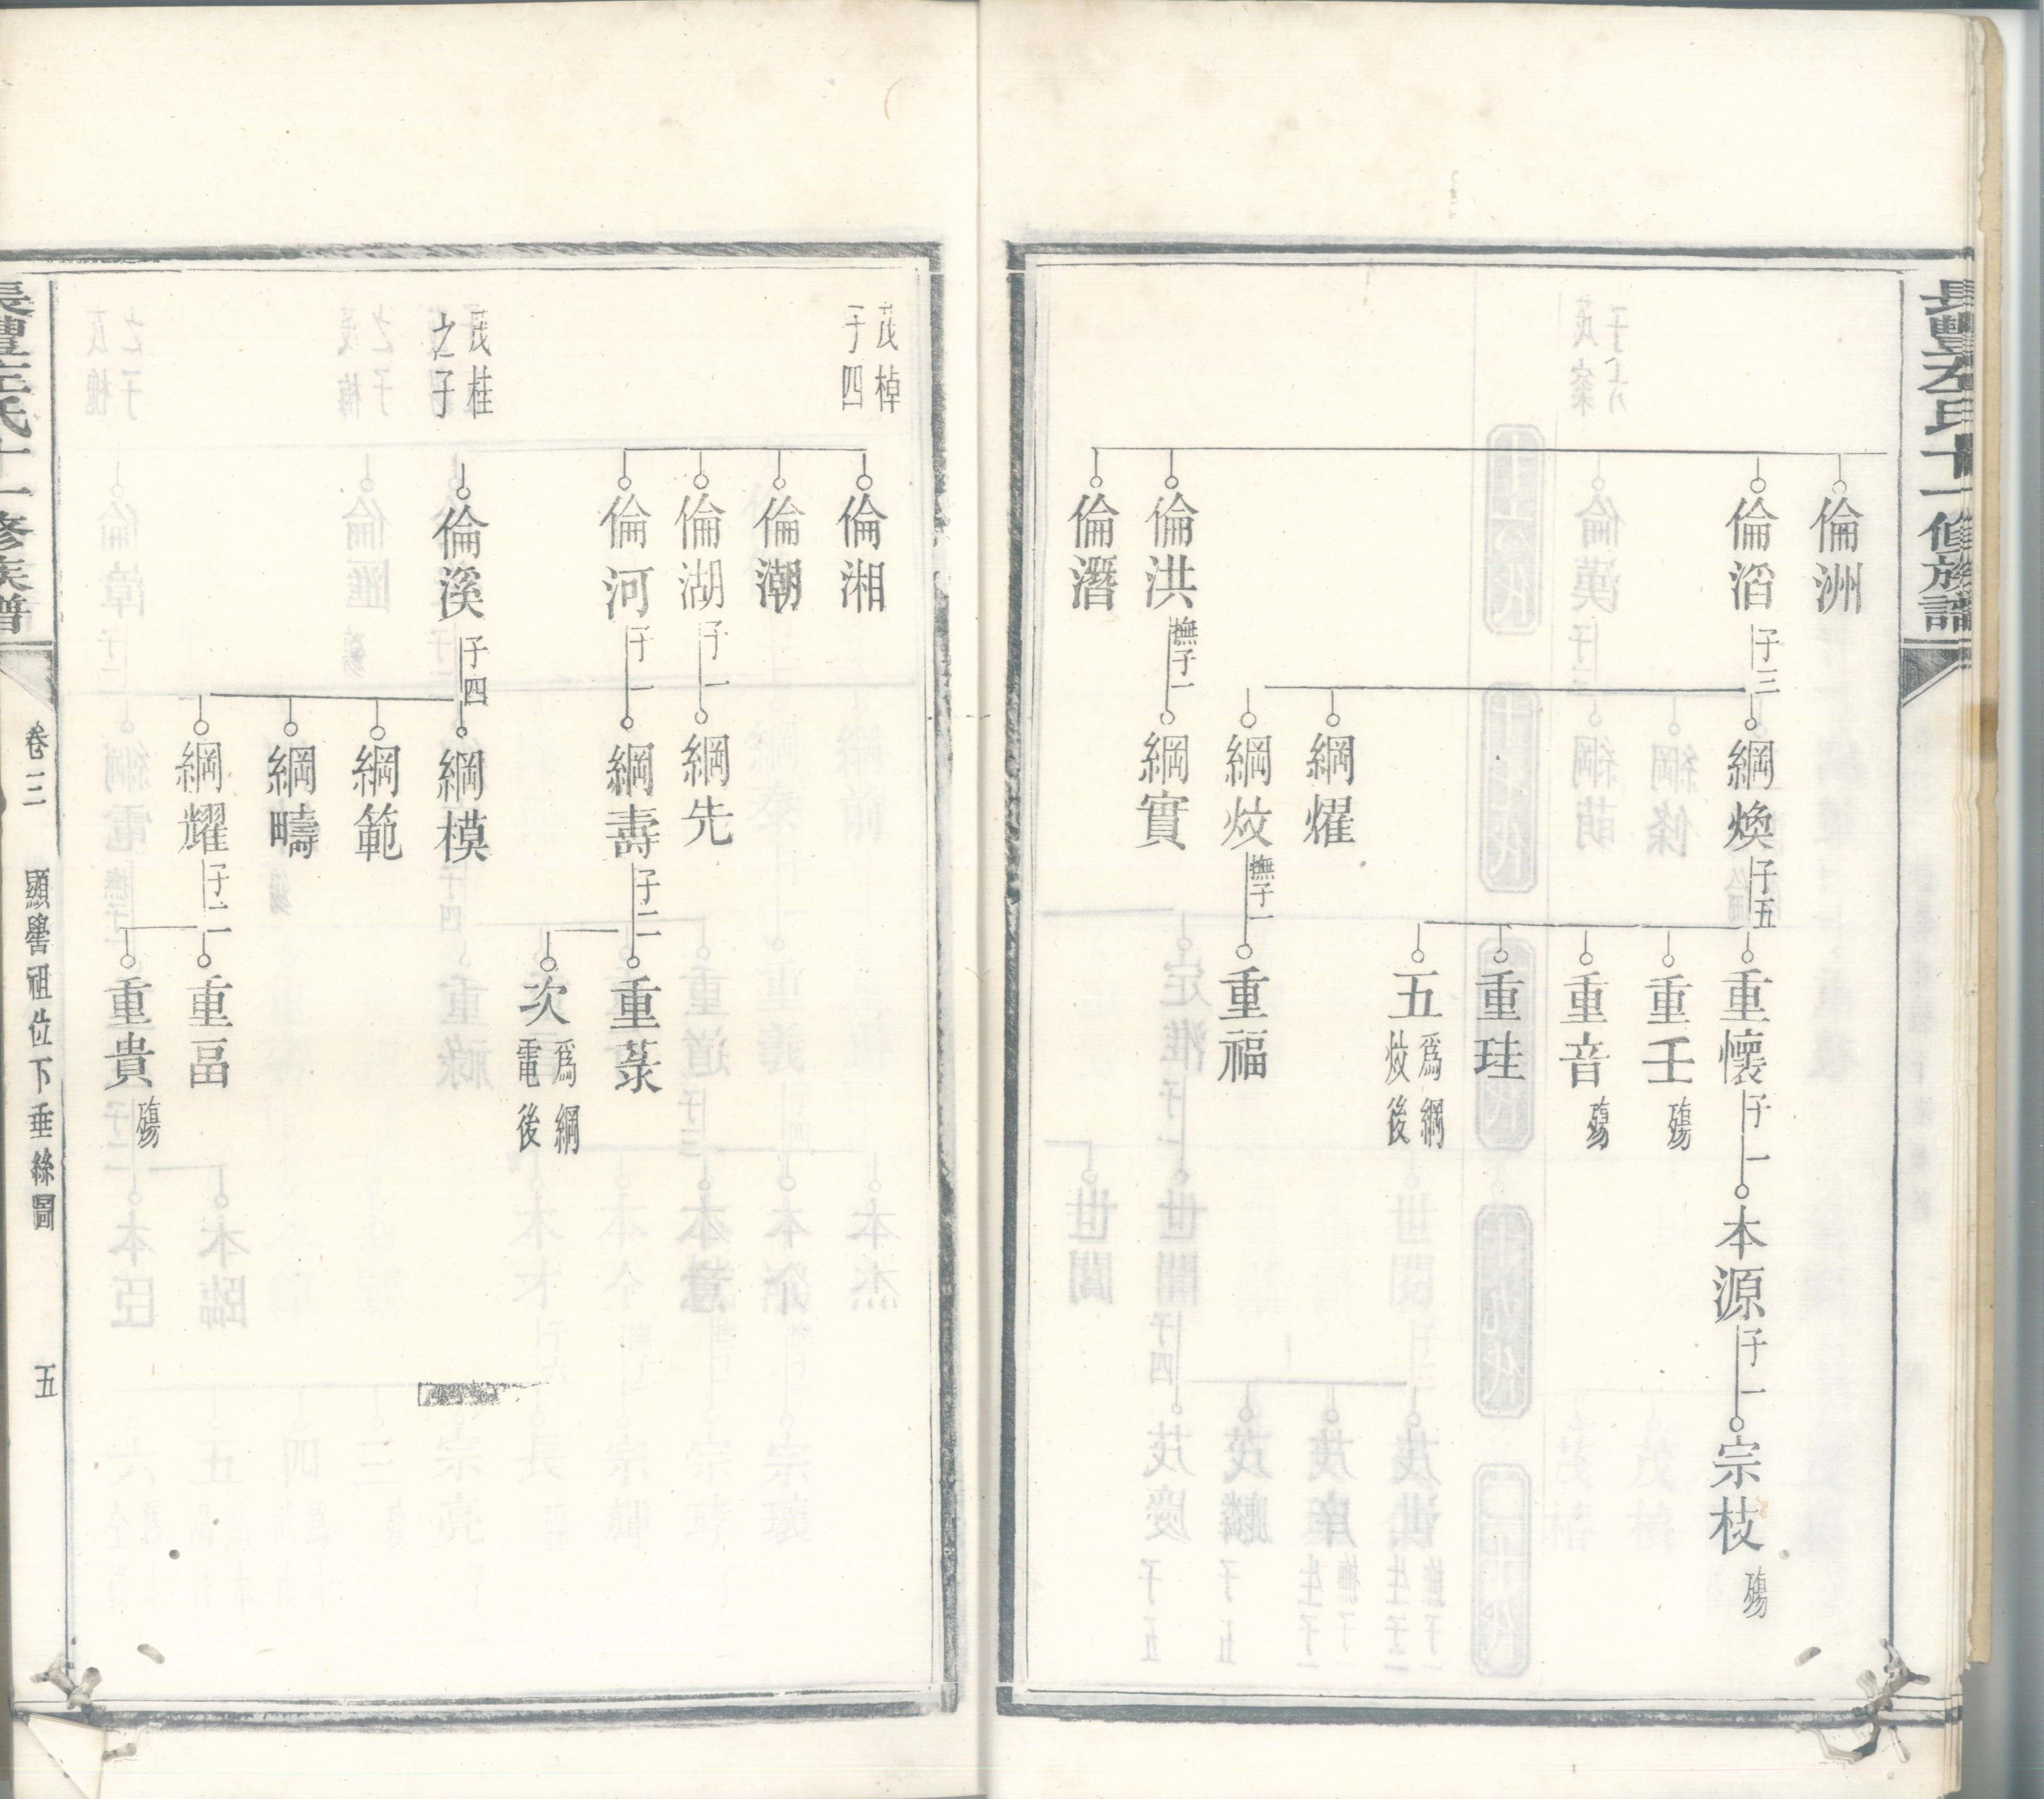 長豐左氏十一修族譜
倫洲
倫滔
子三
綱煥
子五
重懷
子一
本源
子一
宗枝
殤
重壬
殤
重音
殤
重珪
五
爲綱
炆後
綱燿
綱炆
撫子一
重福
倫洪
撫子一
綱實
倫潛
茂棹
子四
倫湘
倫潮
倫湖
子一
綱先
倫河
子一
綱壽
子二
重菉
次
爲綱
電後
茂桂
之子
倫溪
子四
綱模
綱範
綱疇
綱耀
子二
重畐
重貴
殤
長豐左氏十一修族譜
卷三
顯譽祖位下垂絲圖
五